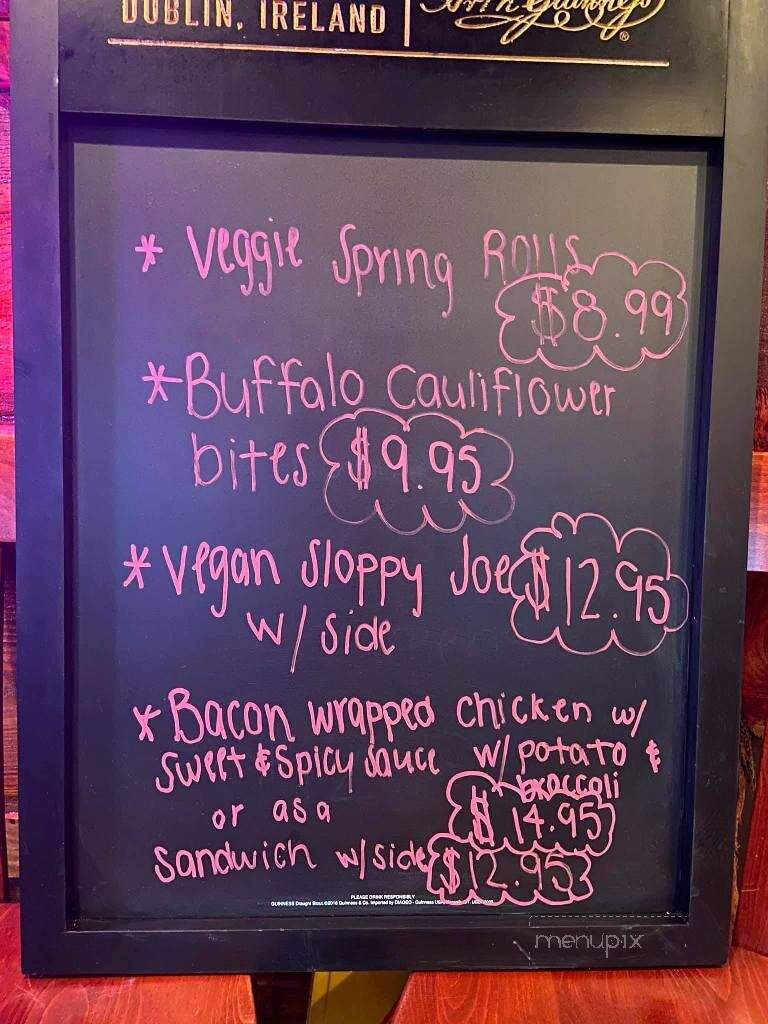 DUBLIN, IRELAND
* Veggie Spring Rolls
$8.99
* Buffalo Cauliflower
bites $9.95
* Vegan Sloppy Joe $12.95
w/ side
* Bacon wrapped chicken w/
sweet & spicy sauce w/ potato &
broccoli
$14.95
or as a
sandwich w/ side $12.95
PLEASE DRINK RESPONSIBLY
GUINNESS Draught Stout ©2016 Guinness & Co. Imported by DIAGEO - Guinness USA
menupix